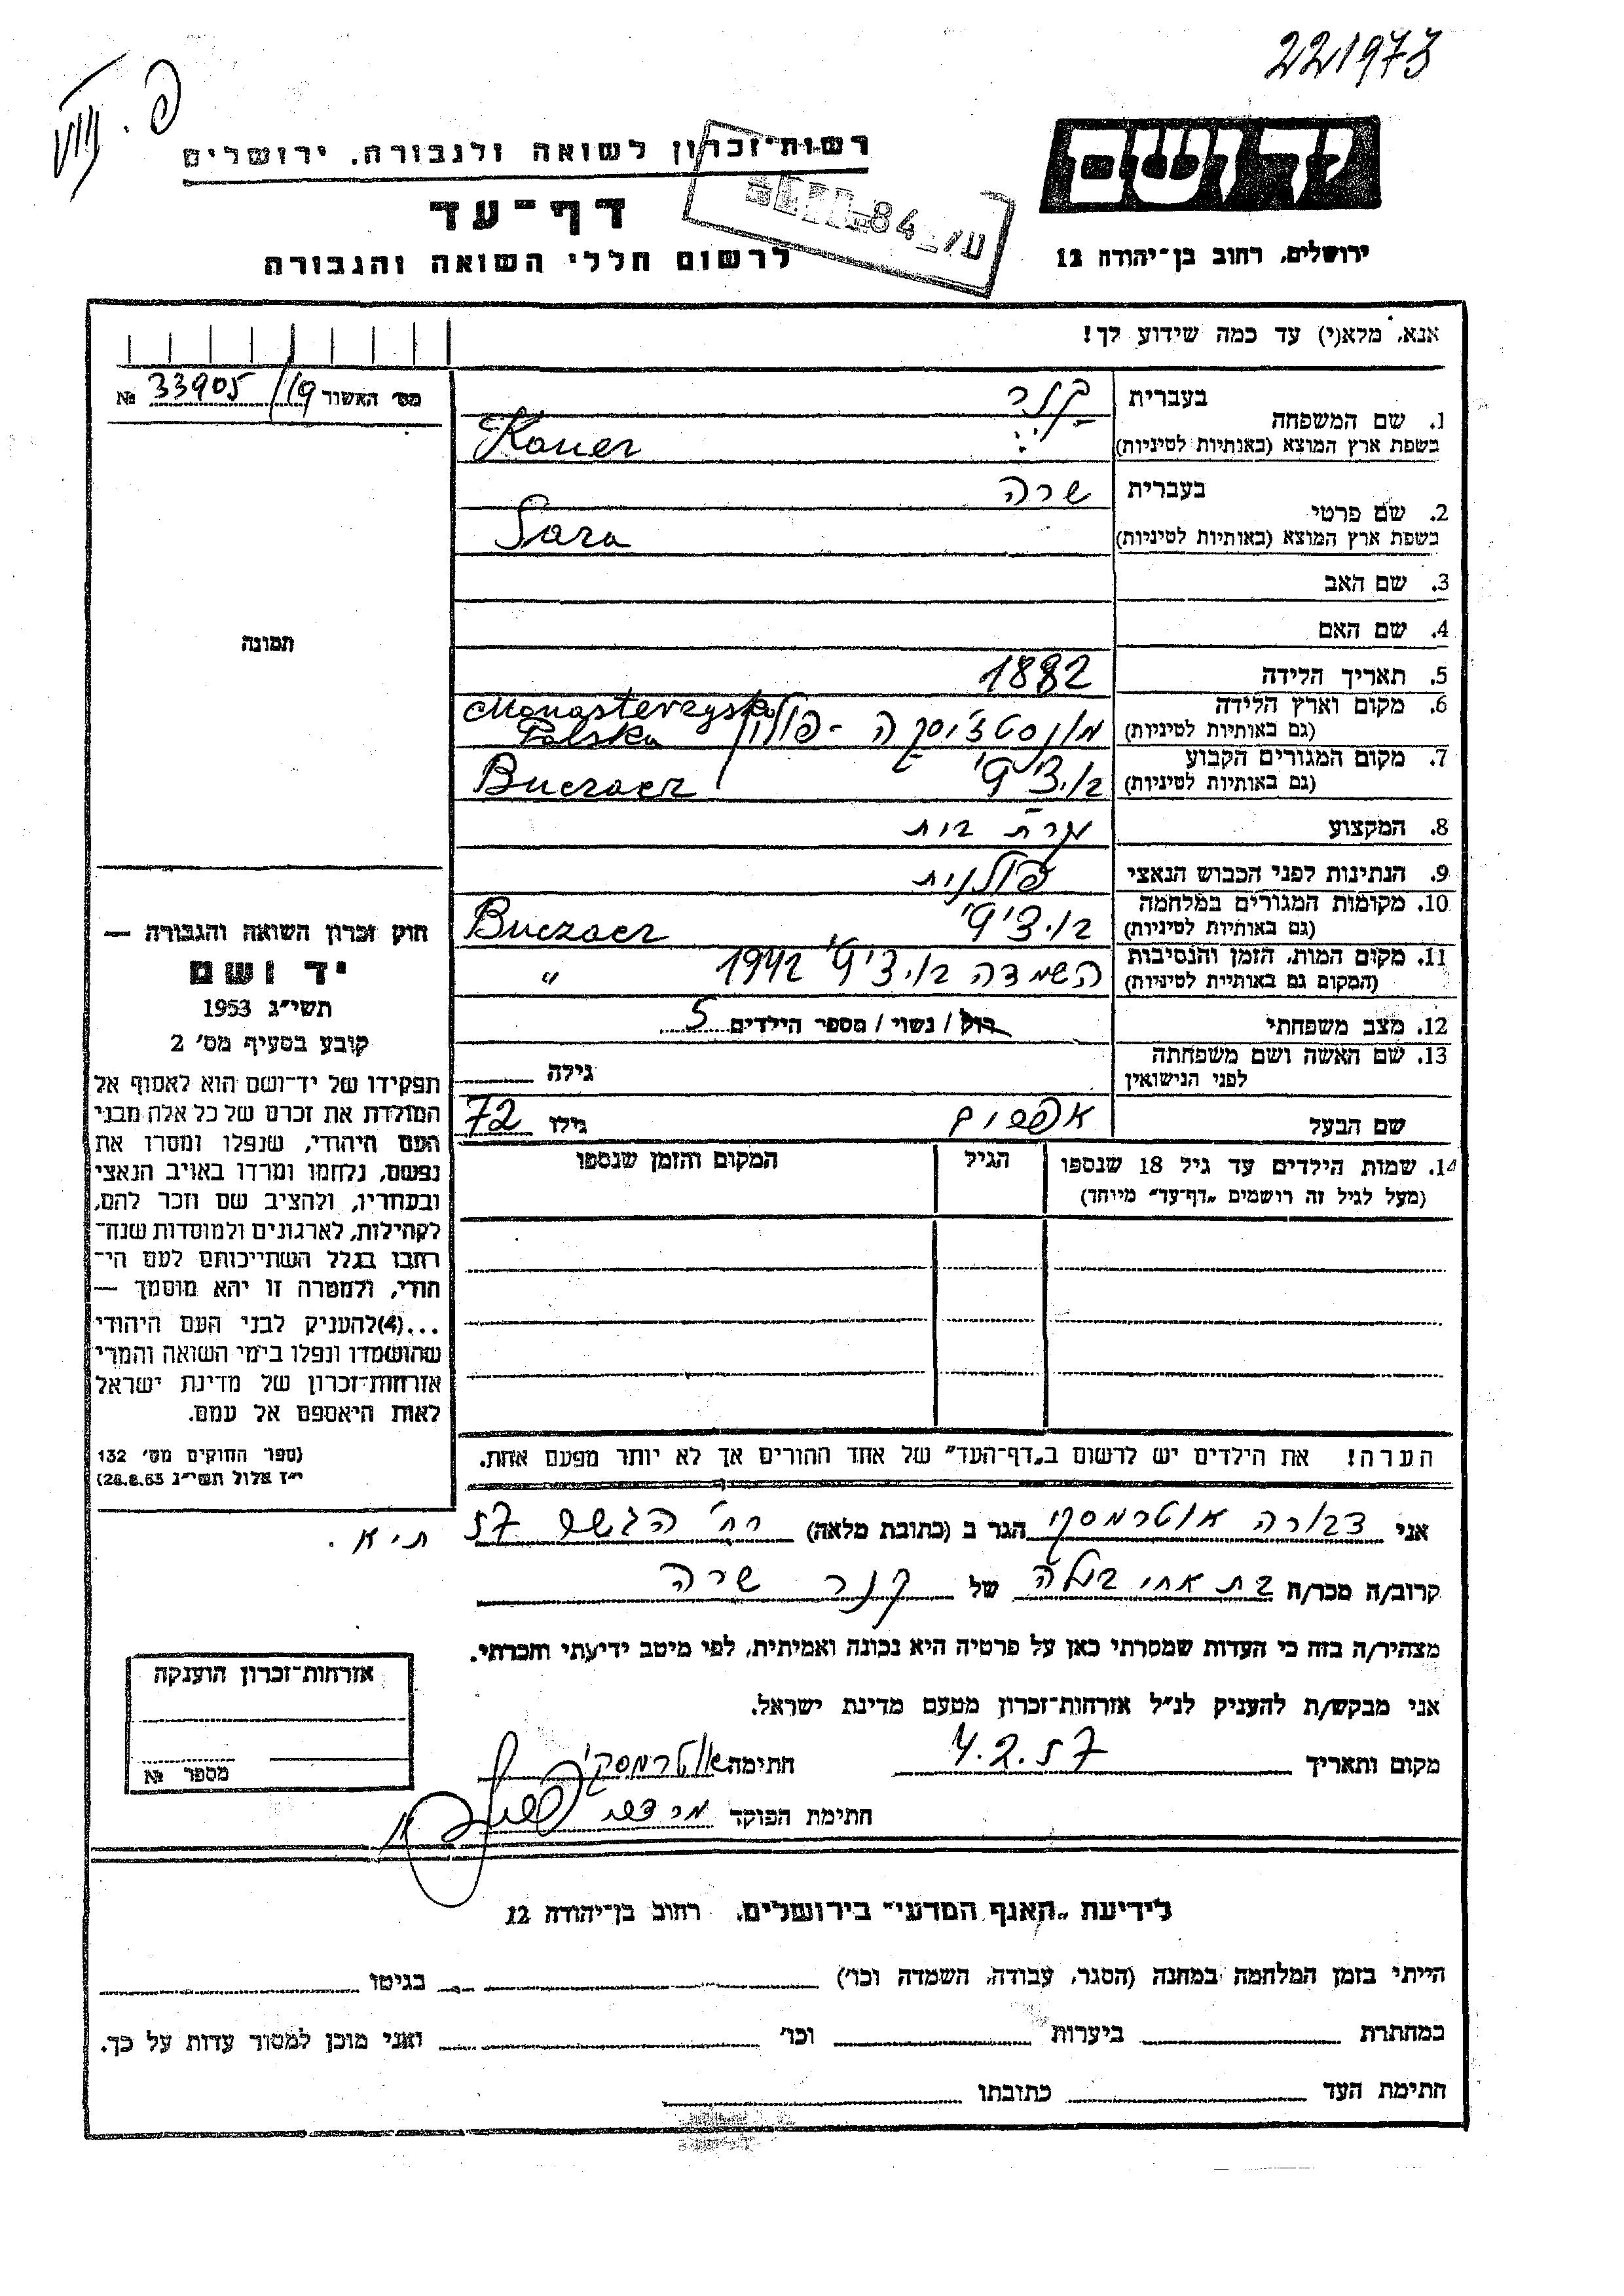 221973
יד ושם
רשות־זכרון לשואה ולגבורה. ירושלים
דף־עד
לרשום חללי השואה והגבורה
ירושלים, רחוב בן־יהודה 12
אנא, מלא(י) עד כמה שידוע לך!
מס׳ האשור 19/ 33905 №
1. שם המשפחה
בעברית קנר
בשפת ארץ המוצא (באותיות לטיניות) Kaner
2. שם פרטי
בעברית שרה
בשפת ארץ המוצא (באותיות לטיניות) Sara
3. שם האב
4. שם האם
5. תאריך הלידה 1882
6. מקום וארץ הלידה
(גם באותיות לטיניות) פולין - Monasterzyska Polska
7. מקום המגורים הקבוע
(גם באותיות לטיניות) Buczacz
8. המקצוע עקרת בית
9. הנתינות לפני הכבוש הנאצי פולנית
10. מקומות המגורים במלחמה
(גם באותיות לטיניות) Buczacz
11. מקום המות, הזמן והנסיבות
(המקום גם באותיות לטיניות) השמדה 1942 "
12. מצב משפחתי רווק / נשוי / מספר הילדים 5
13. שם האשה ושם משפחתה
לפני הנישואין גילה
שם הבעל אפרים גילו 72
14. שמות הילדים עד גיל 18 שנספו
(מעל לגיל זה רושמים „דף־עד״ מיוחד)
הגיל
המקום והזמן שנספו
הערה! את הילדים יש לרשום ב„דף־העד״ של אחד ההורים אך לא יותר מפעם אחת.
תמונה
חוק זכרון השואה והגבורה —
יד ושם
תשי״ג 1953
קובע בסעיף מס׳ 2
תפקידו של יד־ושם הוא לאסוף אל
המולדת את זכרם של כל אלה מבני
העם היהודי, שנפלו ומסרו את
נפשם, נלחמו ומרדו באויב הנאצי
ובעוזריו, ולהציב שם וזכר להם,
לקהילות, לארגונים ולמוסדות שנח־
רבו בגלל השתייכותם לעם הי־
הודי, ולמטרה זו יהא מוסמך —
...(4)להעניק לבני העם היהודי
שהושמדו ונפלו בימי השואה והמרי
אזרחות־זכרון של מדינת ישראל
לאות היאספם אל עמם.
(ספר החוקים מס׳ 132
י״ז אלול תשי״ג 28.8.53)
אני דבורה אוטרמסקי הגר ב (כתובת מלאה) רח׳ 57 ת״א.
קרוב/ה מכר/ה בת אחי בעלה של קנר שרה
מצהיר/ה בזה כי העדות שמסרתי כאן על פרטיה היא נכונה ואמיתית, לפי מיטב ידיעתי והכרתי.
אני מבקש/ת להעניק לנ״ל אזרחות־זכרון מטעם מדינת ישראל.
מקום ותאריך 4.2.57 חתימה אוטרמסקי
חתימת הפוקד
אזרחות־זכרון הוענקה
מספר №
לידיעת „האגף המדעי״ בירושלים, רחוב בן־יהודה 12
הייתי בזמן המלחמה במחנה (הסגר, עבודה, השמדה וכו׳) בגיטו
במחתרת ביערות וכו׳ ואני מוכן למסור עדות על כך.
חתימת העד כתובתו